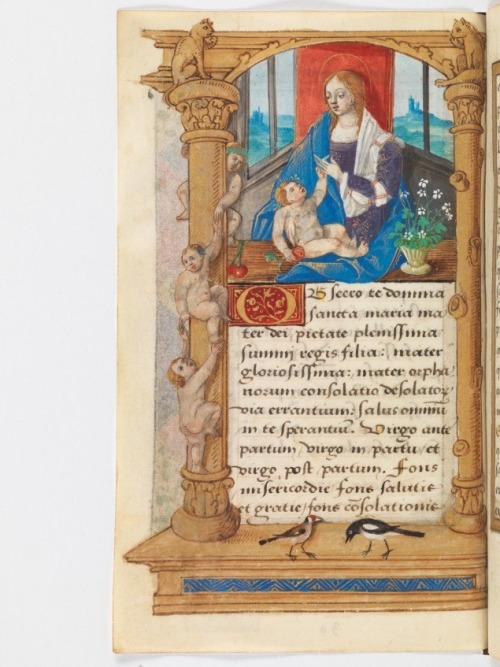 OBsecro te domina
sancta maria ma
ter dei pietate plenissima
summi regis filia: mater
gloriosissima: mater orpha
norum consolatio desolatoꝝ
via errantium. salus omniũ
in te sperantiũ. Virgo ante
partum, virgo in partu, et
virgo post partum. Fons
misericordie fons salutis
et gratie, fons cõsolationis